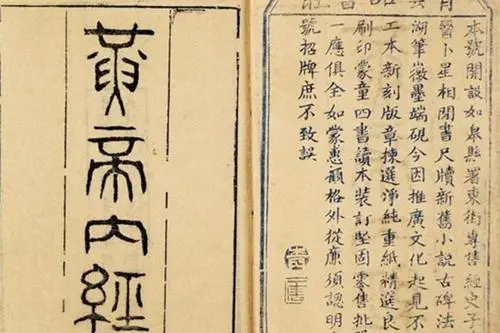 本號開設如皋縣署東街專售經史子
醫卜星相閒書尺牘新舊小說古碑法
湖筆徽墨端硯今因推廣文化起見不
工本新刻版章揀選淨純重紙精選良
刷印蒙童四書讀本裝訂堅固零售批
一應俱全如蒙惠顧格外從廉須認明
號招牌庶不致誤
黃帝內經